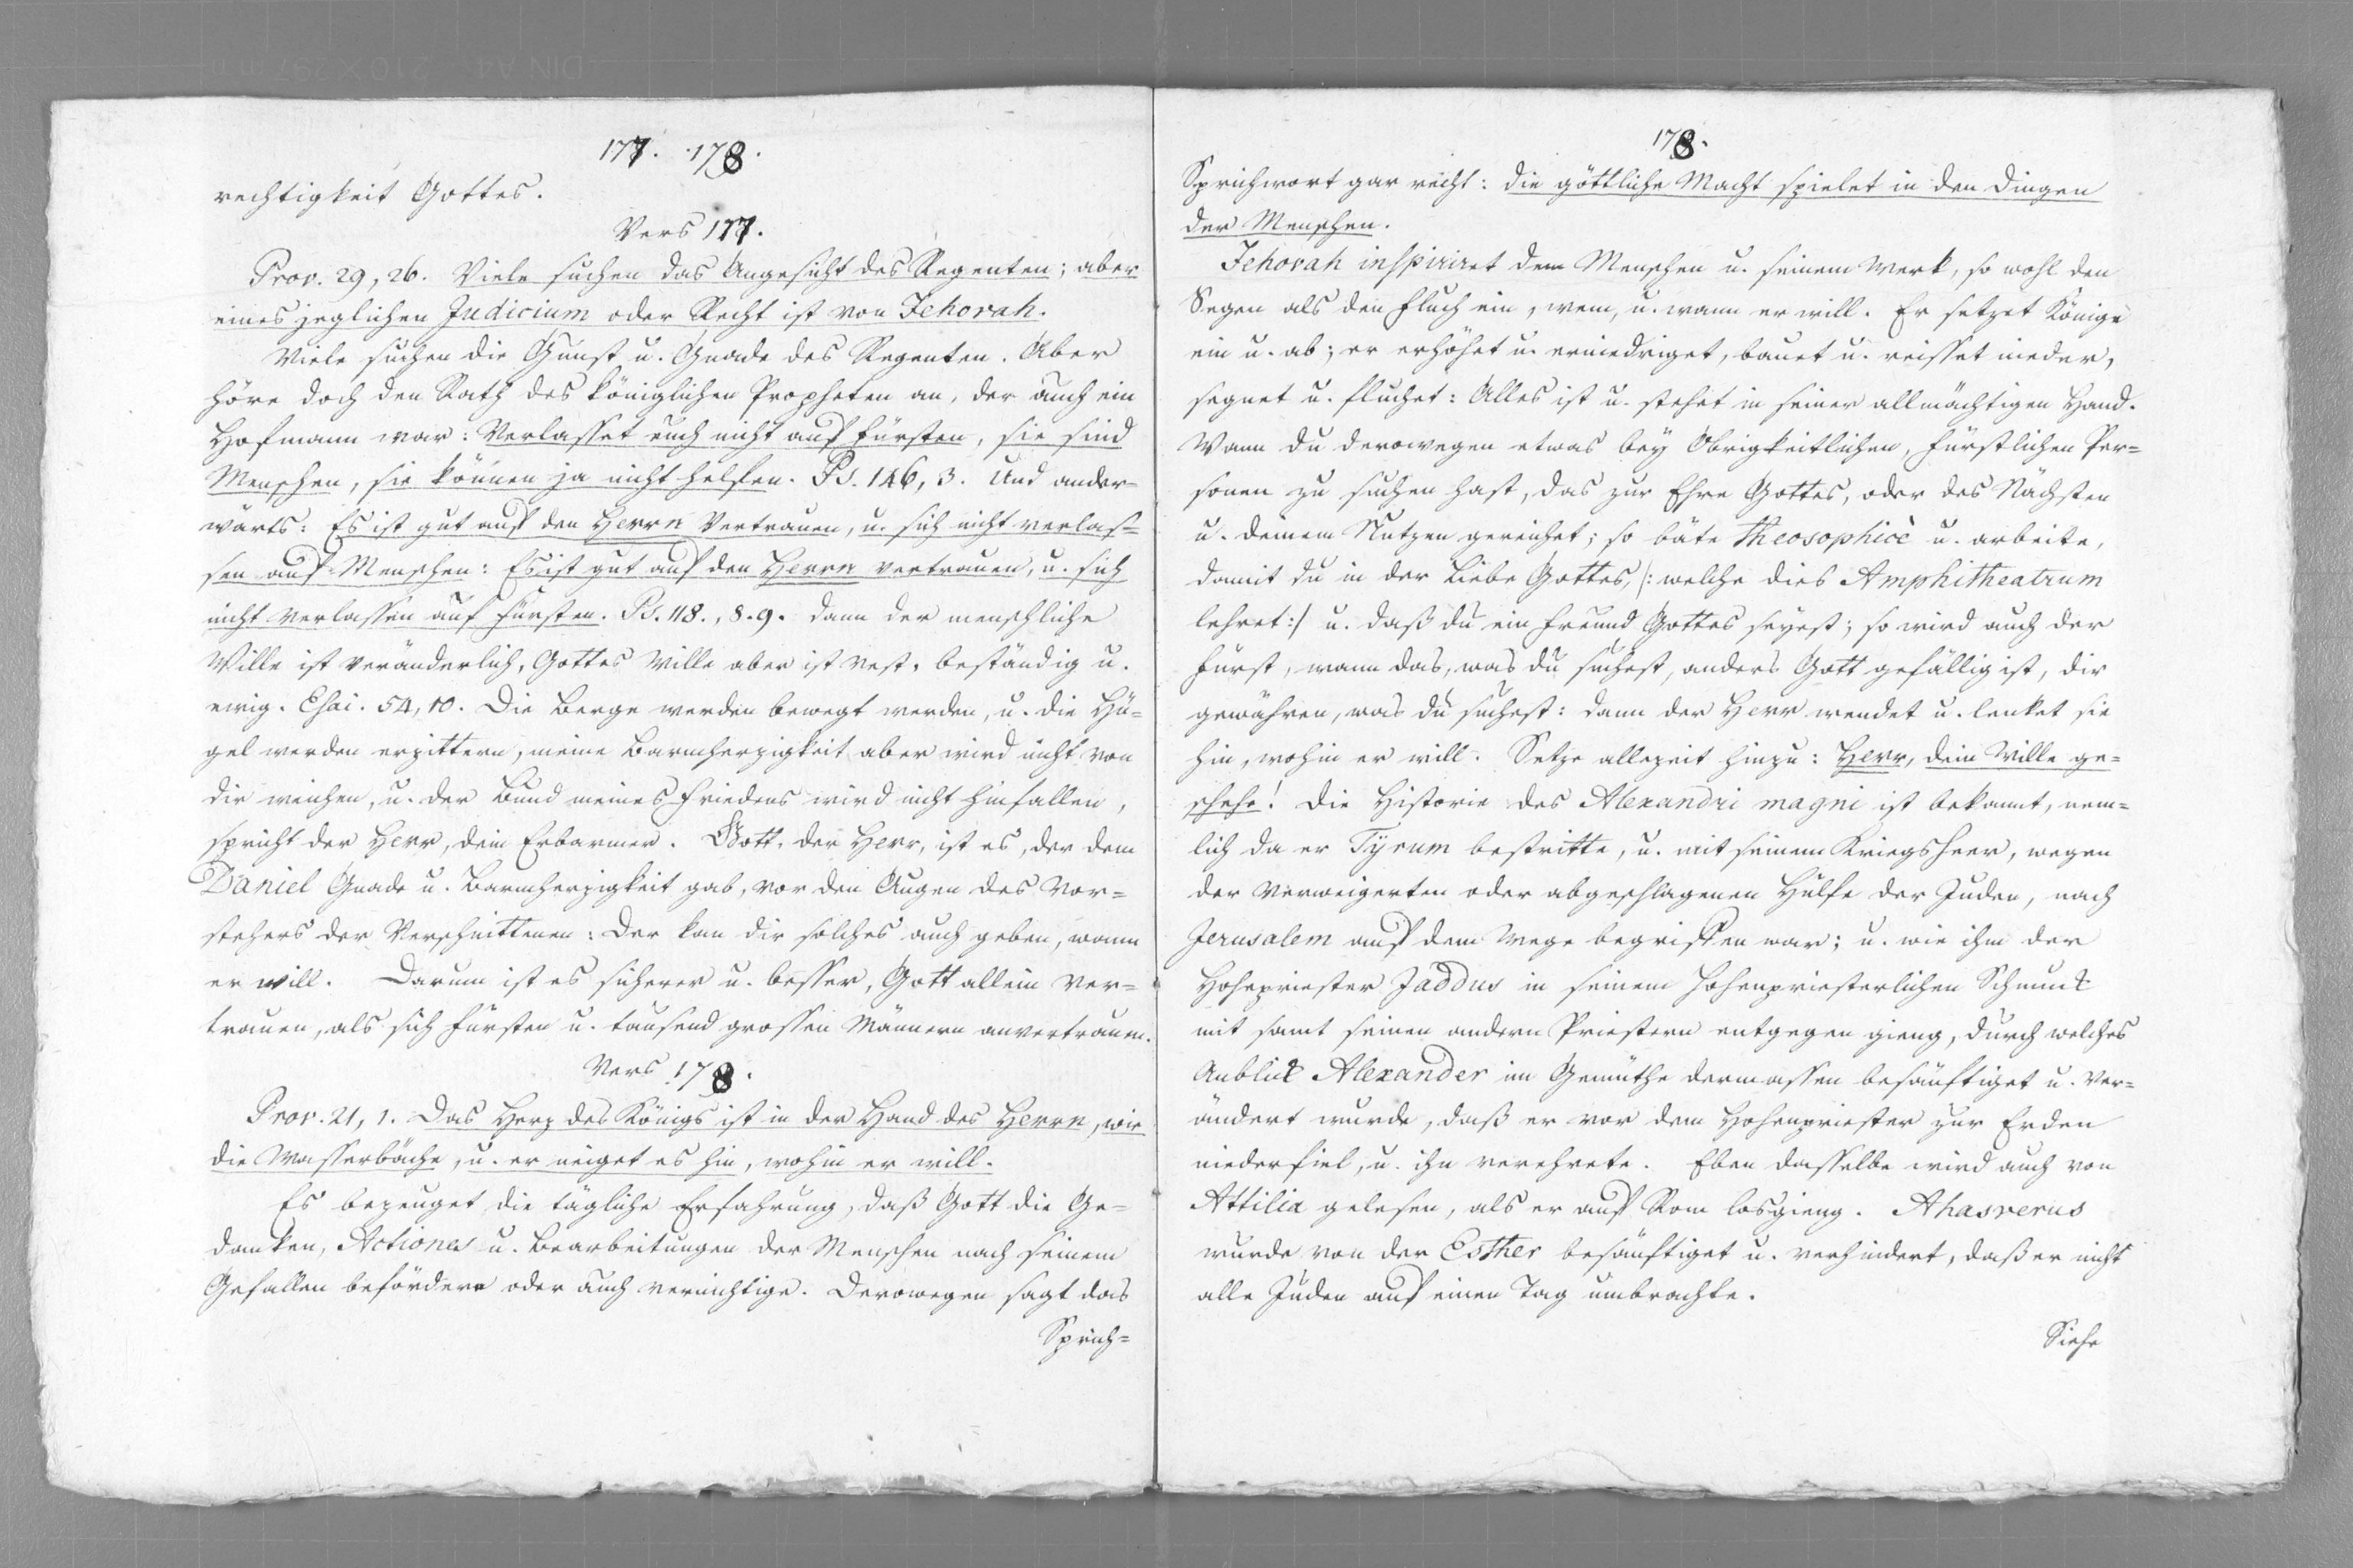 177. 178.
rechtigkeit Gottes.
Vers 177.
Prov. 29, 26. Viele suchen das Angesicht des Regenten; aber
eines jeglichen Judicium oder Recht ist von Jehovah.
Viele suchen die Gunst u. Gnade des Regenten. Aber
höre doch den Rath des königlichen Propheten an, der auch ein
Hofmann war: Verlasset euch nicht auf Fürsten, sie sind
Menschen, sie können ja nicht helfen. Ps. 146, 3. Und ander=
wärts: Es ist gut auf den Herrn Vertrauen, u. sich nicht verlas=
sen auf Menschen: Es ist gut auf den Herrn vertrauen, u. sich
nicht verlassen auf Fürsten. Ps. 118., 8. 9. dann der menschliche
Wille ist veränderlich, Gottes Wille aber ist vest, beständig u.
ewig. Esai. 54, 10. Die Berge werden bewegt werden, u. die Hü=
gel werden erzittern, meine Barmherzigkeit aber wird nicht von
dir weichen, u. der Bund meines Friedens wird nicht hinfallen,
spricht der Herr, dein Erbarmer. Gott, der Herr, ist es, der dem
Daniel Gnade u. Barmherzigkeit gab, vor den Augen des Vor=
stehers der Verschnittenen: Der kan dir solches auch geben, wann
er will. Darum ist es sicherer u. besser, Gott allein ver=
trauen, als sich Fürsten u. tausend grossen Männern anvertrauen.
Vers 178.
Prov. 21, 1. Das Herz des Königs ist in der Hand des Herrn, wie
die Wasserbäche, u. er neiget es hin, wohin er will.
Es bezeuget die tägliche Erfahrung, daß Gott die Ge=
danken, Actiones u. Bearbeitungen der Menschen nach seinem
Gefallen befördere oder auch vernichtige. Derowegen sagt das
Sprich=
178.
Sprichwort gar recht: die göttliche Macht spielet in den Dingen
der Menschen.
Jehovah inspiriret dem Menschen u. seinem Werk, so wohl den
Segen als den Fluch ein, wem, u. wann er will. Er setzet Könige
ein u. ab; er erhöhet u. erniedriget, bauet u. reisset nieder,
segnet u. fluchet: Alles ist u. stehet in seiner allmächtigen Hand.
Wann du derowegen etwas bey Obrigkeitlichen, Fürstlichen Per=
sonen zu suchen hast, das zur Ehre Gottes, oder des Nächsten
u. deinem Nutzen gereichet; so bäte Theosophicè u. arbeite,
damit du in der Liebe Gottes, /: welche dies Amphitheatrum
lehret :/ u. daß du ein Freund Gottes seyest; so wird auch der
Fürst, wann das, was du suchest, anders Gott gefällig ist, dir
gewähren, was du suchest: dann der Herr wendet u. lenket sie
hin, wohin er will. Setze allezeit hinzu: Herr, dein Wille ge=
schehe! Die Historie des Alexandri magni ist bekannt, nem=
lich da er Tyrum bestritte, u. mit seinem Kriegsheer, wegen
der verweigerten oder abgeschlagenen Hülfe der Juden, nach
Jerusalem auf dem Wege begriffen war; u. wie ihm der
Hohepriester Jaddus in seinem hohenpriesterlichen Schmuck
mit samt seinen andern Priestern entgegen gieng, durch welches
Anblick Alexander im Gemüthe dermassen besänftiget u. ver=
ändert wurde, daß er vor dem Hohenpriester zur Erden
niederfiel, u. ihn verehrete. Eben dasselbe wird auch von
Attilia gelesen, als er auf Rom losgieng. Ahasverus
wurde von der Esther besänftiget u. verhindert, daß er nicht
alle Juden auf einen Tag umbrachte.
Siehe